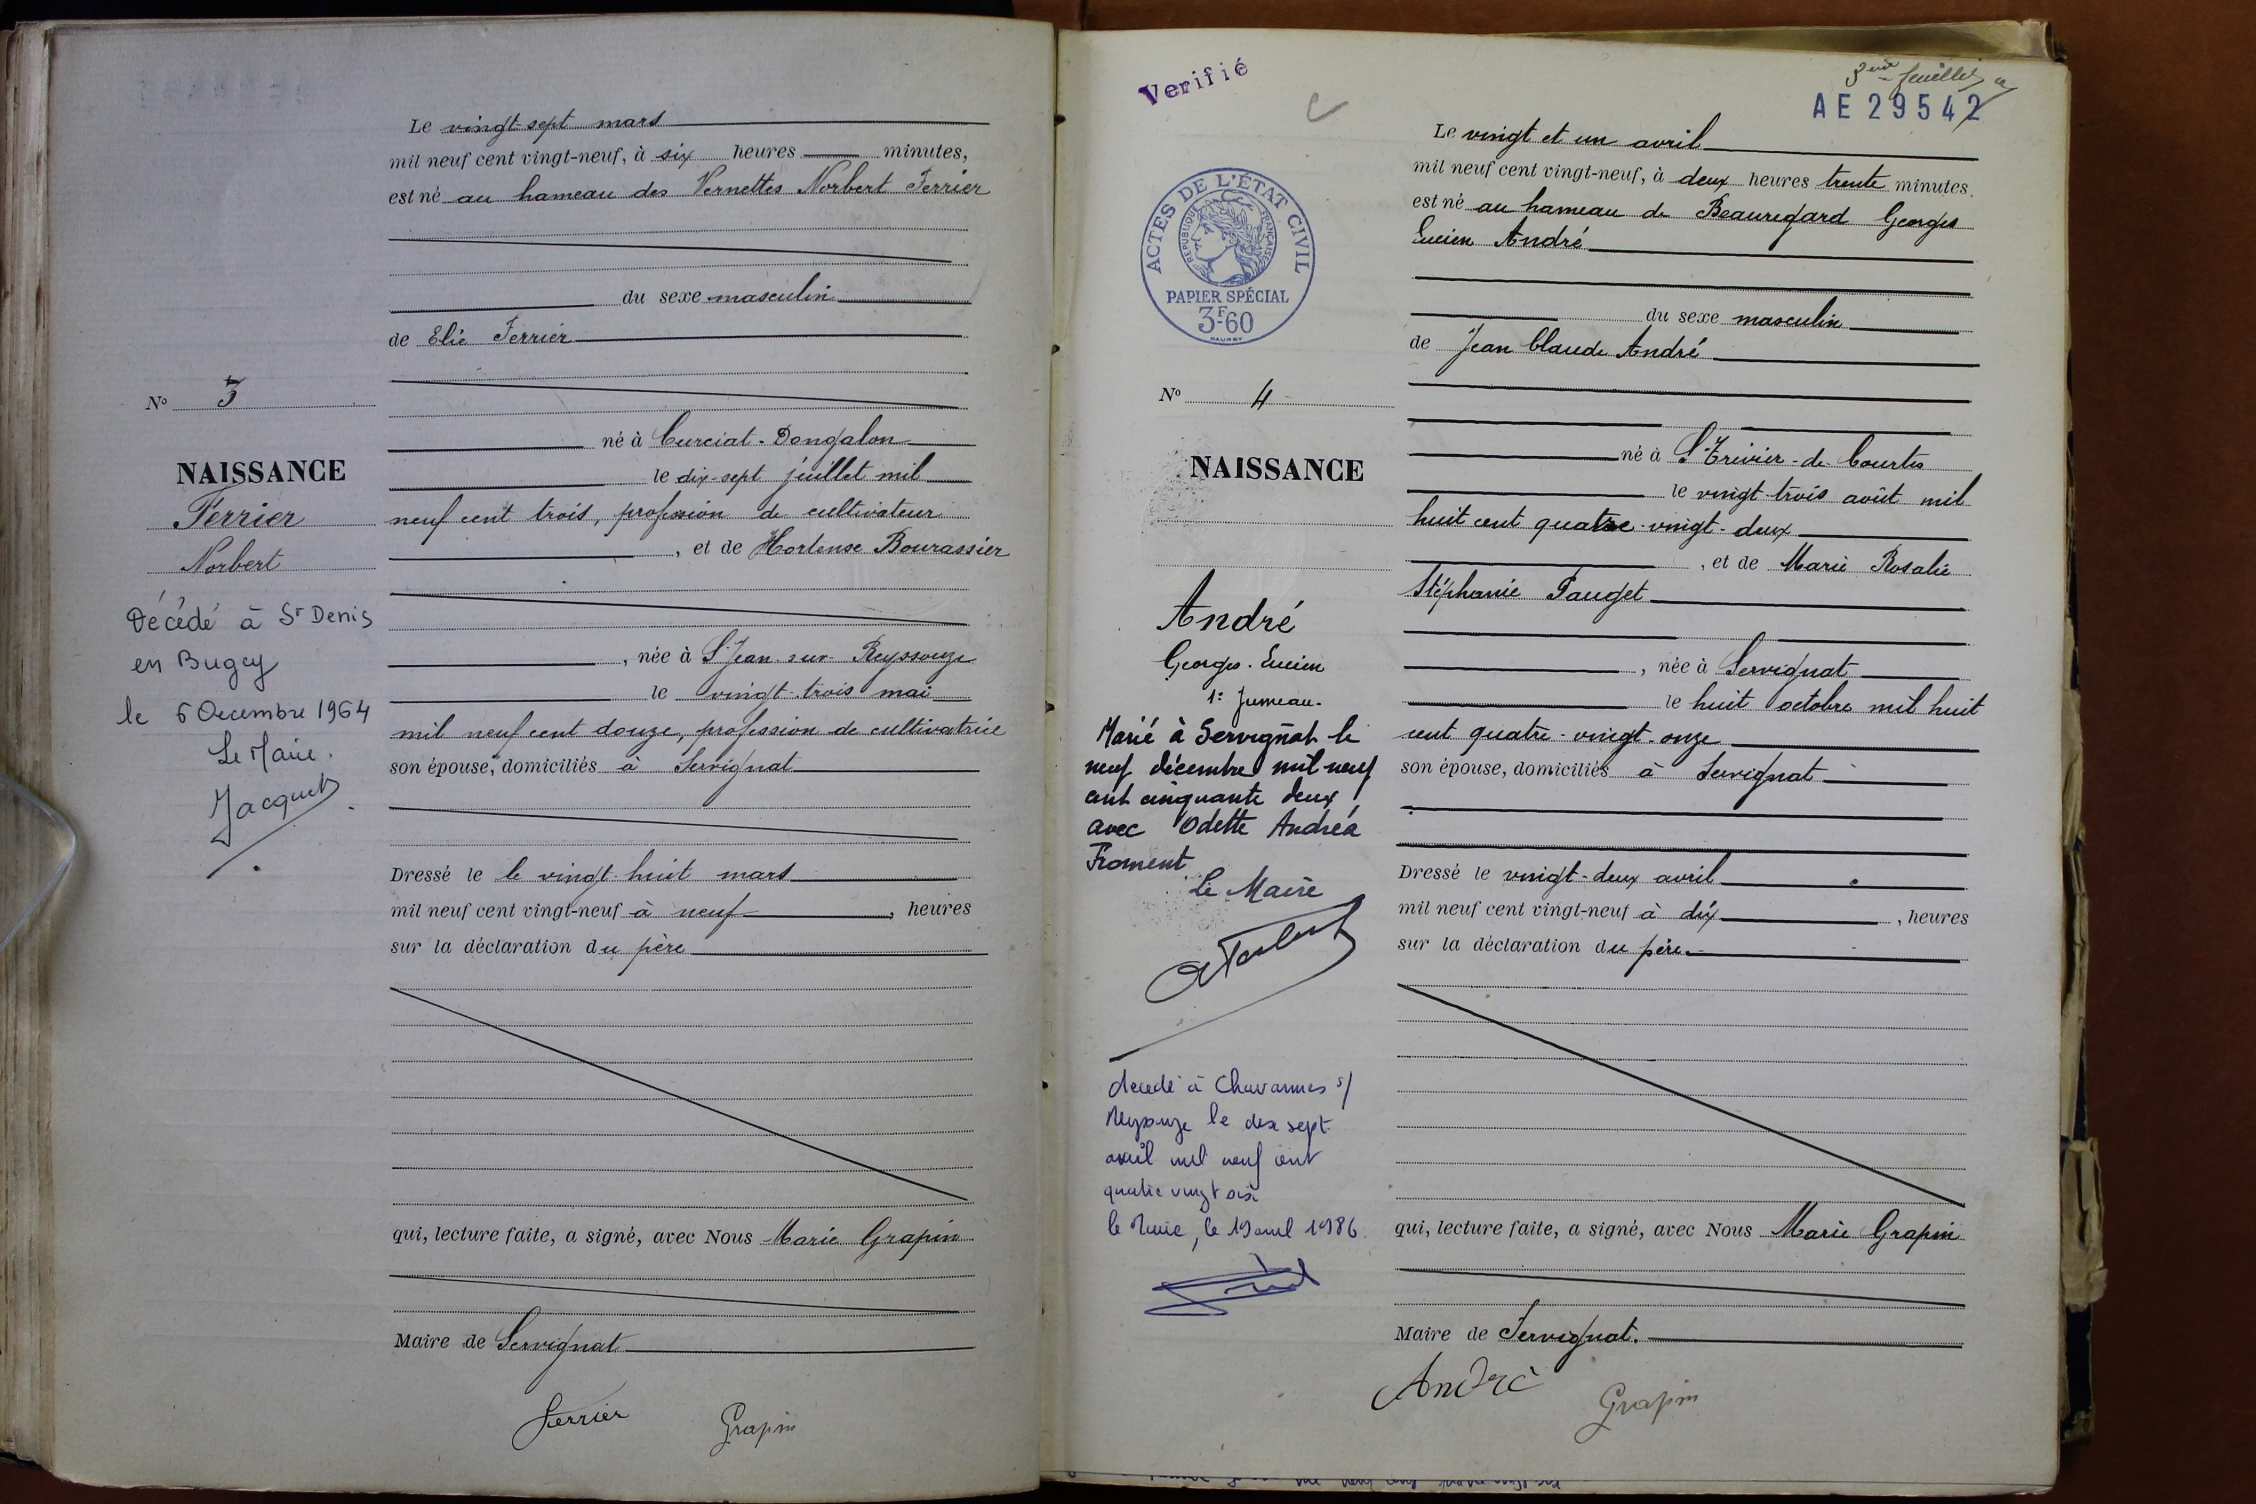 Le vingt-sept mars
mil neuf cent vingt-neuf, à six heures minutes,
est né au hameau des Vernettes Norbert Ferrier
du sexe masculin
de Elie Ferrier
No 3
né à Curciat-Dongalon
NAISSANCE
le dix-sept juillet mil
Ferrier
neuf cent trois, profession de cultivateur
Norbert
, et de Hortense Bourassier
Décédé à St Denis
en Bugey
le 6 Decembre 1964
Le Maire.
Jacquet
, née à St Jean-sur-Reyssouze
le vingt-trois mai
mil neuf cent douze, profession de cultivatrice
son épouse, domiciliés à Servignat
Dressé le le vingt-huit mars
mil neuf cent vingt-neuf à neuf , heures
sur la déclaration du père
qui, lecture faite, a signé, avec Nous Marie Grapin
Maire de Servignat
Ferrier Grapin
Verifié
feuillet
AE 29542
Le vingt et un avril
mil neuf cent vingt-neuf, à deux heures trente minutes
est né au hameau de Beauregard Georges
Lucien André
ACTES DE L'ÉTAT CIVIL
RÉPUBLIQUE FRANÇAISE
PAPIER SPÉCIAL
3F60
du sexe masculin
de Jean Claude André
No 4
né à St Trivier-de-Courtes
NAISSANCE
le vingt-trois août mil
huit cent quatre-vingt-deux
, et de Marie Rosalie
Stéphanie Pauget
André
Georges-Lucien
1r Jumeau.
, née à Servignat
le huit octobre mil huit
cent quatre-vingt-onze
son épouse, domiciliés à Servignat
Marié à Servignat le
neuf décembre mil neuf
cent cinquante deux
avec Odette Andréa
Froment
Le Maire
Dressé le vingt-deux avril
mil neuf cent vingt-neuf à dix , heures
sur la déclaration du père
décédé à Chavannes s/
Reyssouze le dix sept
avril mil neuf cent
quatre vingt six
le Maire, le 19 avril 1986
qui, lecture faite, a signé, avec Nous Marie Grapin
Maire de Servignat.
André Grapin